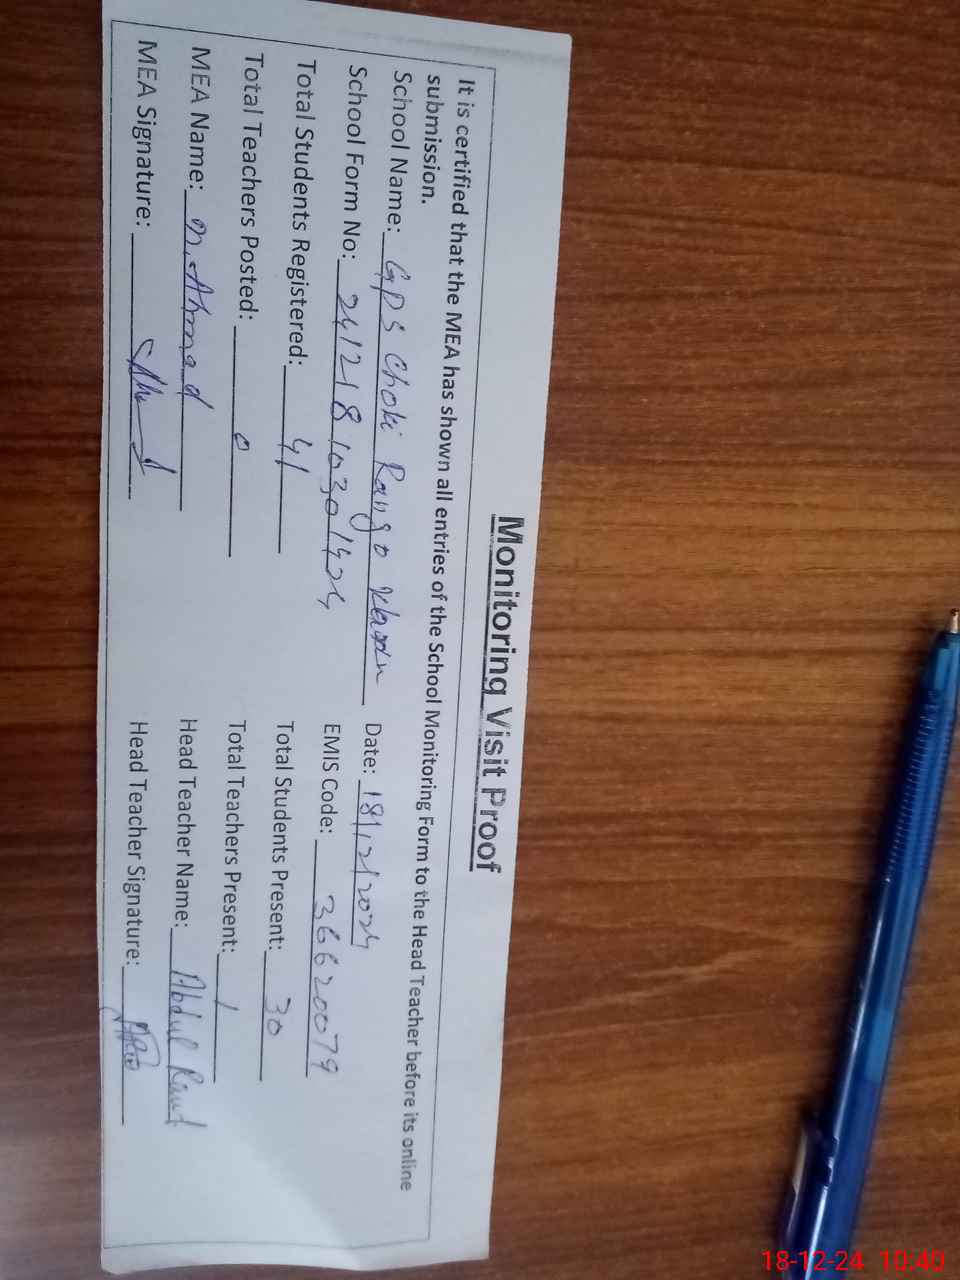 Monitoring Visit Proof
It is certified that the MEA has shown all entries of the School Monitoring Form to the Head Teacher before its online
submission.
School Name: GPS Choki Rango Khan Date: 18/12/2024
School Form No: 24121810301424 EMIS Code: 36620079
Total Students Registered: 41 Total Students Present: 30
Total Teachers Posted: 0 Total Teachers Present: 1
MEA Name: M. Ahmad Head Teacher Name: Abdul Rauf
MEA Signature: Head Teacher Signature:
18-12-24 10:40